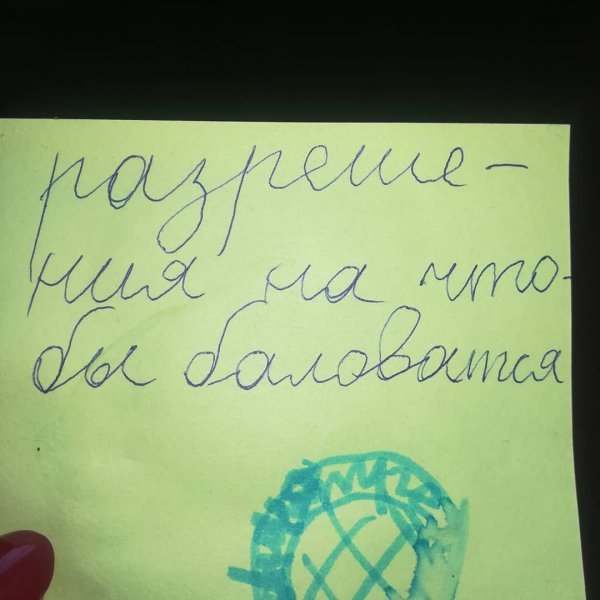 разреше-
ния на что-
бы баловатся